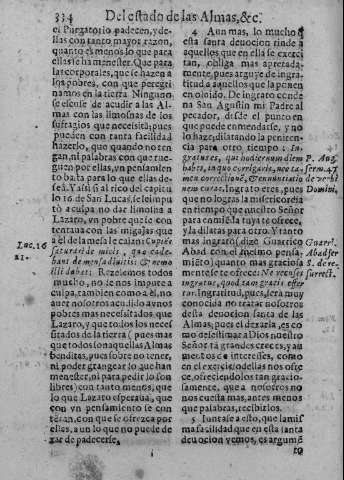 334 Del estado de las Almas, &c.
el Purgatorio padecen, y de-
llas con tanto mayor razon,
quanto es menos lo que para
ellas se ha menester. Que para
las corporales, que se hazen a
los pobres, con que peregri
namos en la tierra. Ninguno
se escuse de acudir a las Al-
mas con las limosnas de los
sufragios que necesitã, pues
pueden con tanta facilidad
hazerlo, que quando no ten
gan, ni palabras con que rue-
guen por ellas, vn pensamien
to basta para lo que ellas de-
seã. Ya si al rico del capitulo
16 de San Lucas, se le impu
tò a culpa no dar limosna a
Lazaro, vn pobre que se con
tentaua con las migajas que
a el de la mesa le caian: Cupiẽs
saturari de micis, quæ cade-
bant de mensa diuitis: & nemo
illi dabat:
Luc. 16
21.
Rezelemos todos
mucho, no se nos impute a
culpa, tambien como a èl, no
auer nosotros acudido a vnos
pobres mas necesitados que
Lazaro, y que todos los neces
sitados de la tierra (pues mas
que todos lo son aquellas Almas
benditas, pues sobre no tener,
ni poder grangear lo que han
menester, ni aun pedir lo son
libres) con tanto menos, que
lo que Lazaro esperaua, que
con vn pensamiento se con
tentan, con que se ofrezca por
ellas, aun lo que no puede de
xar de padecerse.
4 Aun mas, lo mucho q̃
esta santa deuocion rinde a
aquellos, que en ella se exerci
tan, obliga mas apretada-
mente, pues arguye de ingra-
titud a aquellos que la ponen
en oluido. De ingrato conde
na San Agustin mi Padre al
pecador, desde el punto en
que puede enmendarse, y no
lo haze, dilatando la peniten-
cia para otro tiempo: In-
gratus es, qui hodiernum diem
habet, in quo corrigaris, nec ta-
men correctionẽ,
P. Aug.
serm. 47
de verbi
Domini,
Ingrato eres, pues
que no logras la misericordia
en tiempo que nuestro Señor
para comiença tuya te ofrece,
y la dilatas para otro. Y tanto
mas ingrato (dize Guarrico
Abad con el mismo pensa-
miẽto) quanto mas graciosa
mente se te ofrece: Ne recuses
ingratus, quod tam gratis offer
tur.
Guarri.
Abad ser
S. de re-
surrect.
Ingratitud, pues, serà muy
conocida no tratar nosotros
desta deuocion santa de las
Almas, pues el dexarla, es co-
mo desestimar a Dios nuestro
Señor tã grandes creces, y au
mentos de intereses, como
en el exercicio dellas nos ofre
ce, ofreciendolos tan gracio-
samente, que a nosotros no
nos cuesta mas, antes menos
que palabras, recibirlos.
5 Iuntase a esto, que la mis
ma facilidad que en esta santa
deuocion vemos, es argumẽ
to